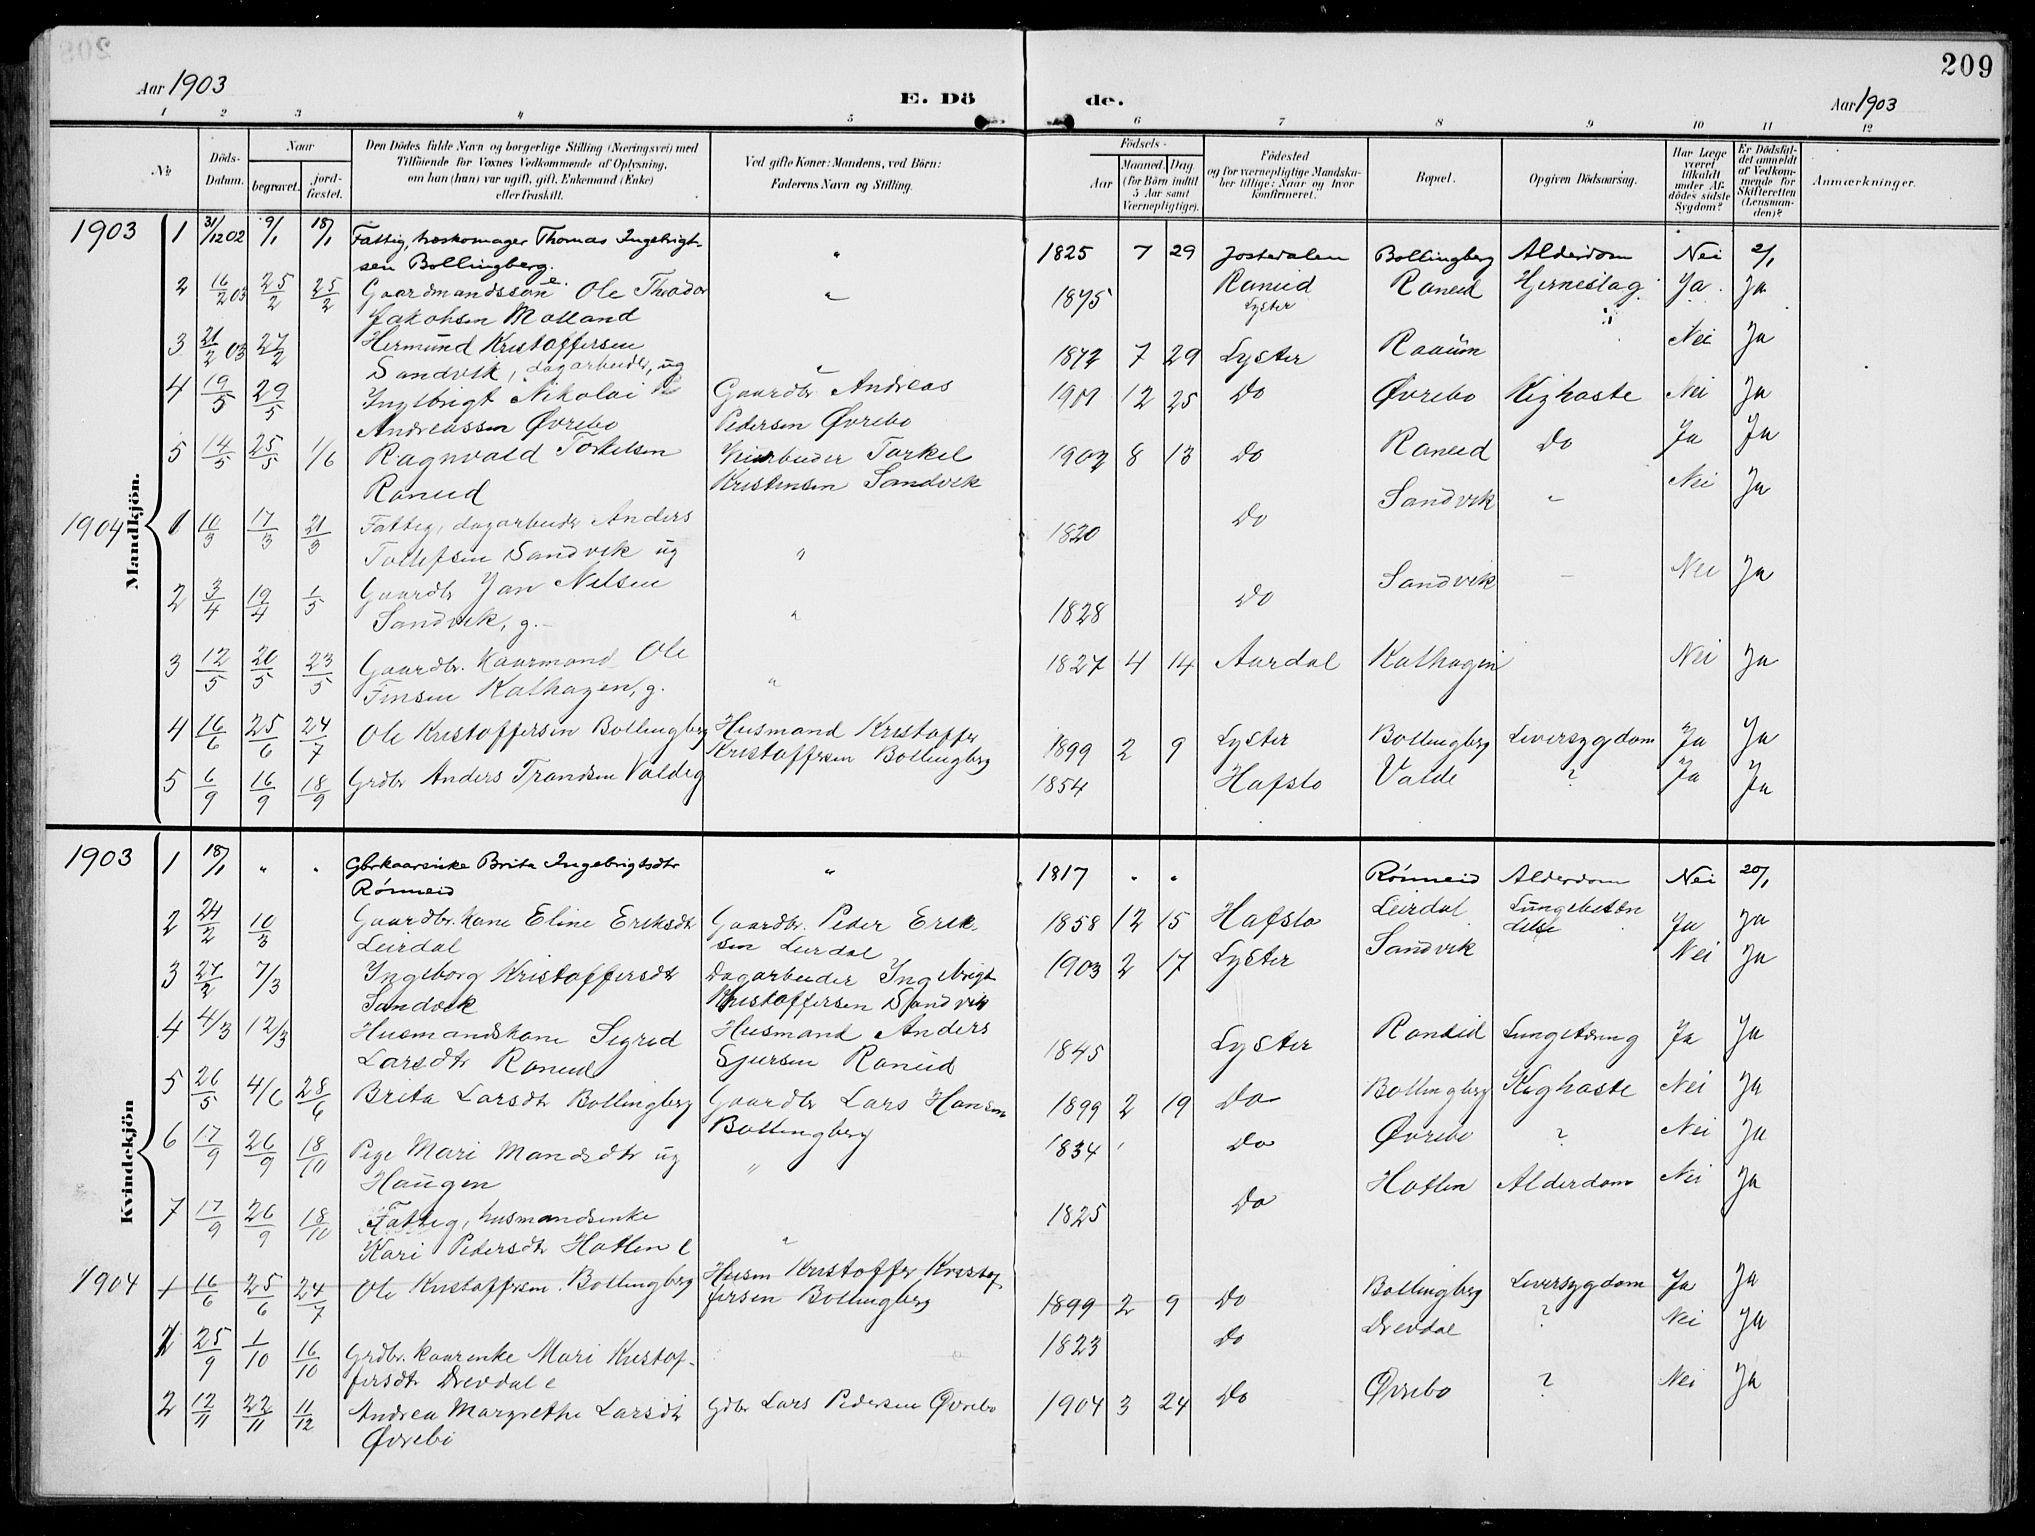 209
Aar 1903
E. Dö
de.
Aar 1903
1 2 3 4 5 6 7 8 9 10 11 12
No
Döds-
Datum.
Naar
begravet.
jord-
fæstet.
Den Dödes fulde Navn og borgerlige Stilling (Næringsvei) med
Tilföiende for Voxnes Vedkommende af Oplysning,
om han (hun) var ugift, gift, Enkemand (Enke)
eller fraskilt.
Ved gifte Koner: Mandens, ved Börn:
Faderens Navn og Stilling.
Födsels-
Aar
Maaned. Dag.
(for Börn indtil
5 Aar samt
Værnepligtige).
Födested
og for værnepligtige Mandska-
ber tillige: Naar og hvor
konfirmeret.
Bopæl.
Opgiven Dödsaarsag.
Har Læge
været
tilkaldt
under Af-
dödes sidste
Sygdom?
Er Dödsfal-
det anmeldt
af Vedkom-
mende for
Skifteretten
(Lensman-
den)?
Anmærkninger.
Mandkjön.
1903 1 31/12 02 9/1 18/1 Fattig, træskomager Thomas Ingebrigt-
sen Bollingberg. e. " 1825 7 29 Jostedalen Bollingberg Alderdom Nei 2/1
2 16/2 03 25/2 25/2 Gaardmandssøn Ole Theodor
Jakobsen Molland " 1875 Røneid Lyster Røneid Hjerneslag Ja Ja
3 21/2 03 27/2 Hermund Kristoffersen
Sandvik, dagarbeider, ug " 1872 7 29 Lyster Nei Ja
4 19/5 29/5 Ingebrigt Nikolai
Andreassen Øvrebø Gaardbr Andreas
Pedersen Øvrebø 1901 12 25 Do Øvrebø Kighoste Nei Ja
5 14/5 25/5 1/6 Ragnvald Torkelsen
Røneid Torkel
Kristensen Sandvik 1902 8 13 Do Røneid Do Ja Ja
1904 1 10/3 17/3 21/3 Fattig, dagarbeidr Anders
Tollefsen Sandvik ug " 1820 Do Sandvik - Nei Ja
2 3/4 19/4 1/5 Gaardbr Jan Nilsen
Sandvik, g. - " 1828 Do Sandvik - Nei Ja
3 12/5 20/5 23/5 Gaardbr. kaarmand Ole
Finsen Kalhagen, g. " 1827 4 14 Aardal Kalhagen Nei Ja
4 16/6 25/6 24/7 Ole Kristoffersen Bollingberg Husmand Kristoffer
Kristoffersen Bollingberg 1899 2 9 Lyster Bollingberg Leversygdom Ja Ja
5 6/9 16/9 18/9 Grdbr Anders Trondsen Valde g 1854 Hafslo Valde ? Ja Ja
Kvindekjön
1903 1 18/1 " " Gbrkaarenke Brita Ingebrigtsdtr
Rønneid " 1817 " " Rønneid Alderdom Nei 20/1
2 24/2 10/3 Gaardbr. kone Eline Eriksdtr
Leirdal Gaardbr. Peder Erik-
sen Leirdal 1858 12 15 Hafslo Leirdal Lungebetæn
delse Ja Ja
3 27/2 7/3 Ingeborg Kristoffersdtr
Sandvik Dagarbeider Ingebrigt
Kristoffersen Sandvik 1903 2 17 Lyster Sandvik Nei Ja
4 4/3 12/3 Husmandskone Sigrid
Larsdtr Røneid Husmand Anders
Sjursen Røneid 1845 Lyster Røneid Lungetæring Ja Ja
5 26/5 4/6 28/6 Brita Larsdtr Bollingberg Gaardbr Lars Hansen
Bollingberg 1899 2 19 Do Bollingberg Kighoste Nei Ja
6 17/9 26/9 18/10 Pige Mari Monsdtr ug
Haugen " 1834 Do Øvrebø ? Nei Ja
7 17/9 26/9 18/10 Fattig, husmandsenke
Kari Pedersdtr Hatlen e " 1825 Do Hatlen Alderdom Nei Ja
1904 1 16/6 25/6 24/7 Ole Kristoffersen Bollingberg Husm Kristoffer Kristof-
fersen Bollingberg 1899 2 9 Do Bollingberg Leversygdom Ja Ja
1 25/9 1/10 16/10 Grdbr. kaarenke Mari Kristof-
fersdtr Drevdal e 1823 Do Drevdal ? Nei Ja
2 12/11 22/11 11/12 Andrea Margrethe Larsdtr
Øvrebø Gdbr Lars Pedersen Øvrebø 1904 3 24 Do Øvrebø ? Nei Ja